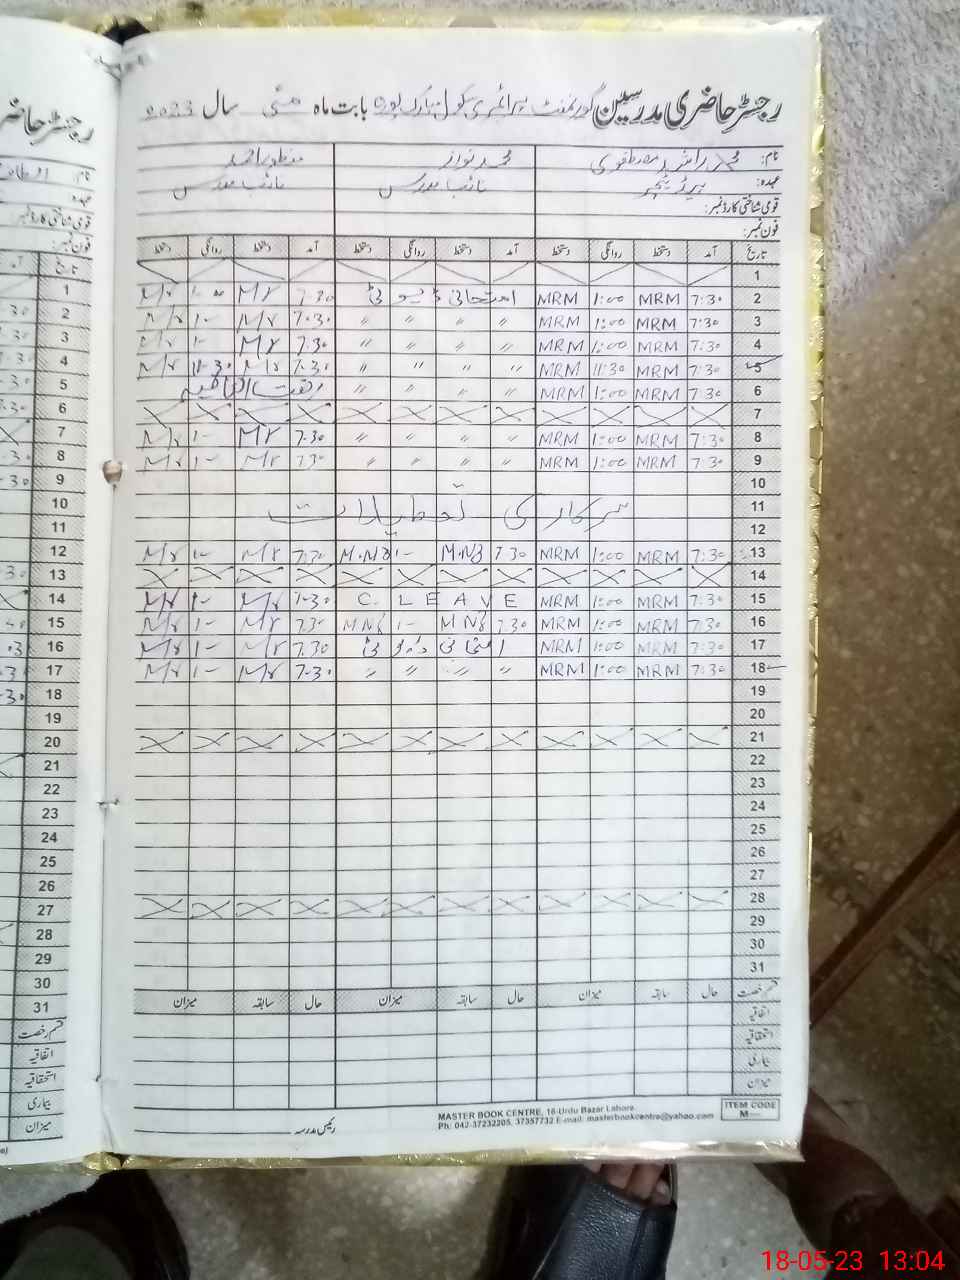 رجسٹر حاضری مدرسین گورنمنٹ پرائمری سکول مبارک پور بابت ماہ مئی سال 2023
نام: محمد راشد مصطفوی محمد نواز منظور احمد
عہدہ: ہیڈ ٹیچر نائب مدرس نائب مدرس
قومی شناختی کارڈ نمبر:
فون نمبر:
تاریخ آمد دستخط روانگی دستخط آمد دستخط روانگی دستخط آمد دستخط روانگی دستخط
1
2 7:30 MRM 1:00 MRM امتحانی ڈیوٹی 7.30 1-00
3 7:30 MRM 1:00 MRM " " " " 7.30 1-
4 7:30 MRM 1:00 MRM " " " " 7.30 1-
5 7:30 MRM 11:30 MRM " " " " 7.30 11-30
6 7:30 MRM 1:00 MRM " " " " رخصت اتفاقیہ
7
8 7:30 MRM 1:00 MRM " " " " 7.30 1-
9 7:30 MRM 1:00 MRM " " " " 7.30 1-
10
11 سرکاری تعطیلات
12
13 7:30 MRM 1:00 MRM 7.30 1- 7.30 1-
14
15 7:30 MRM 1:00 MRM C. LEAVE 7.30 1-
16 7:30 MRM 1:00 MRM 7.30 1- 7.30 1-
17 7:30 MRM 1:00 MRM امتحانی ڈیوٹی 7.30 1-
18 7:30 MRM 1:00 MRM " " " " 7.30 1-
19
20
21
22
23
24
25
26
27
28
29
30
31
قسم رخصت حال سابقہ میزان حال سابقہ میزان حال سابقہ میزان
اتفاقیہ
استحقاقیہ
بیماری
میزان
رئیس مدرسہ
MASTER BOOK CENTRE, 16-Urdu Bazar Lahore.
Ph: 042-37232205, 37357732 E-mail: masterbookcentre@yahoo.com
ITEM CODE
M—
تاریخ
1
2
3
4
5
6
7
8
9
10
11
12
13
14
15
16
17
18
19
20
21
22
23
24
25
26
27
28
29
30
31
قسم رخصت
اتفاقیہ
استحقاقیہ
بیماری
میزان
18-05-23 13:04